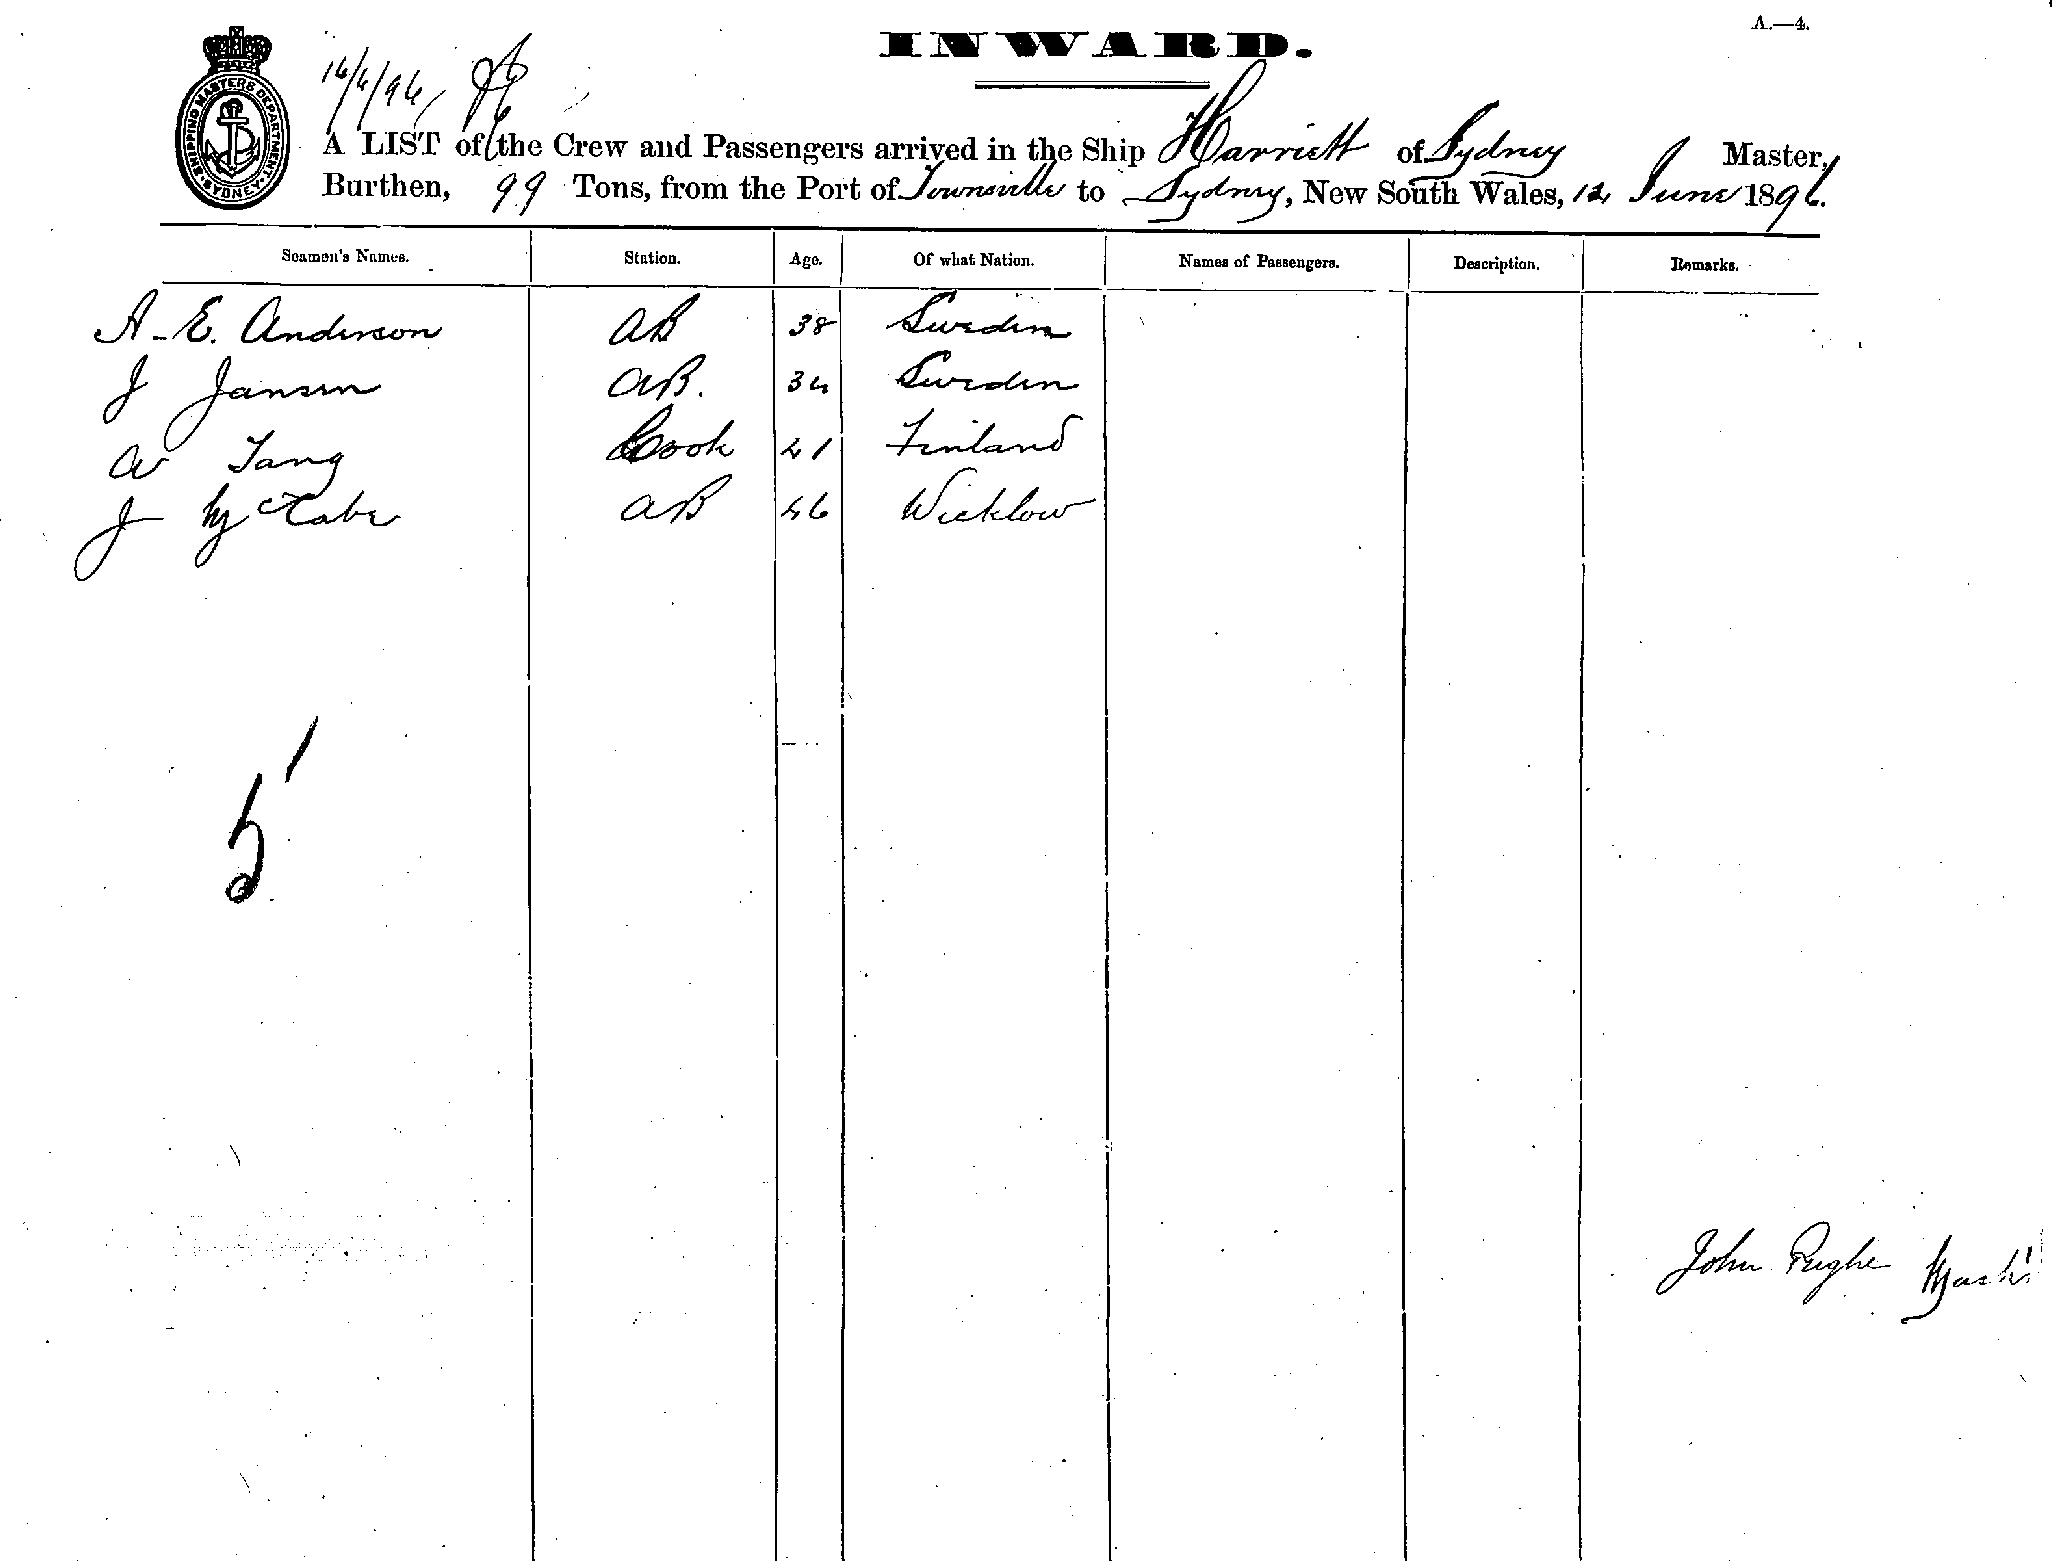 A.—4.
INWARD.
SHIPPING MASTERS DEPARTMENT. SYDNEY.
16/6/96
A LIST of the Crew and Passengers arrived in the Ship Harriett of Sydney Master,
Burthen, 99 Tons, from the Port of Townsville to Sydney, New South Wales, 12 June 1896.
Seamen's Names. Station. Age. Of what Nation. Names of Passengers. Description. Remarks.
A. E. Anderson AB 38 Sweden
J Jansen AB. 34 Sweden
A Tang Cook 41 Finland
J McCabe AB 46 Wicklow
5
John Pughe Mastr